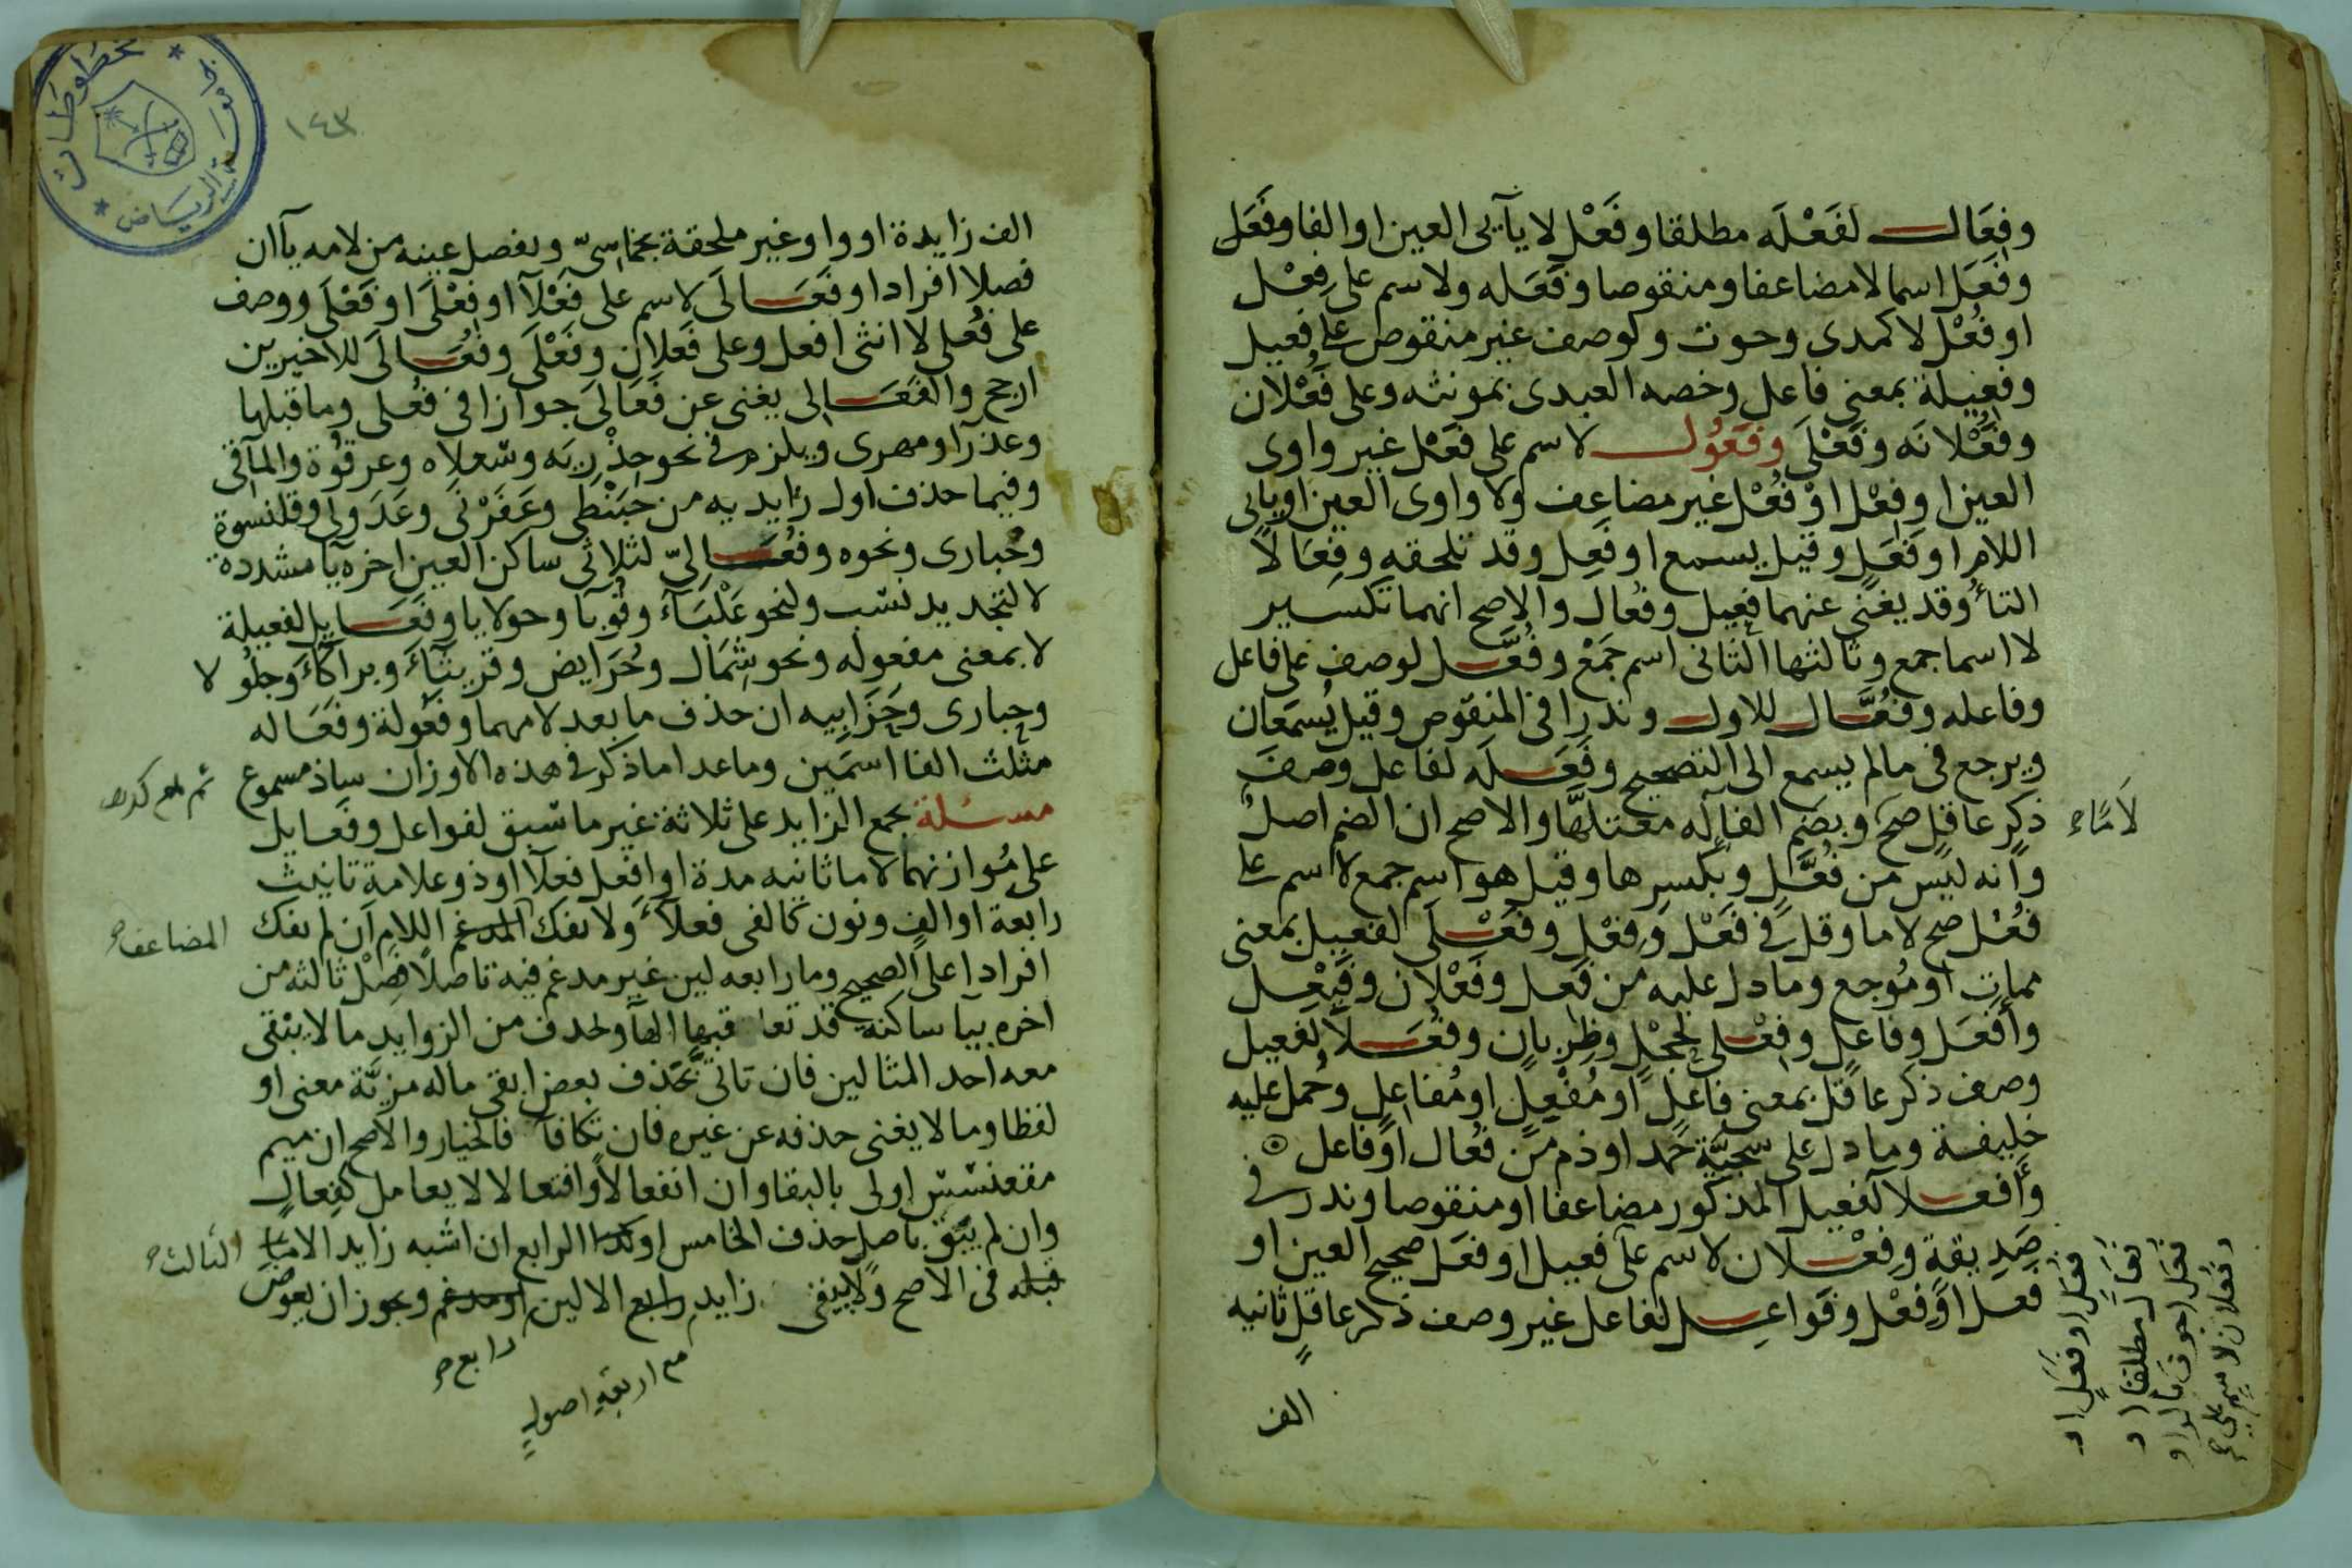 وفِعَال لفَعْلَه مطلقا وفَعْل لا يآيى العين او الفا وفَعَل
وفِعَل اسما لا مضاعفا ومنقوصا وفَعَله ولاسم على فِعْل
او فُعْل لا كمدى وحوت ولوصف غير منقوص على فعيل
وفعِيلة بمعنى فاعل وخصه العبدى بمونثه وعلى فَعْلان
وفَعْلانَه وفَعْلَى وفُعُول لاسم على فَعْل غير واوى
العين او فِعْل او فُعْل غير مضاعف ولا واوى العين او يائى
اللام او فَعَل وقيل يسمع او فَعِل وقد تلحقه وفِعَالا
التاء وقد يغنى عنهما فعِيل وفُعال والاصح انهما تكسير
لا اسما جمع وثالثها الثانى اسم جَمْع وفُعَّل لوصف على فاعل
وفاعله وفُعَّال للاول وندرا فى المنقوص وقيل يُسمَعان
ويرجع فى ما لم يسمع الى التصحيح وفَعَلَه لفاعل وصفَ
ذكرٍ عاقلٍ صحَّ وبضم الفا له معتلّها والاصح ان الضم اصل
لامًا ح
وانه ليس من فُعَّل وبكسرها وقيل هو اسم جمع لاسم على
فُعْل صح لاما وقل فى فَعْل وفِعْل وفَعْلَى لفعيل بمعنى
ممات او مُوجع وما دل عليه من فَعِل وفَعْلان وفَيْعِل
وأفعَل وفاعل وفِعْلى لحجْل وظِربان وفُعَلا لفعيل
وصف ذكر عاقل بمعنى فاعل او مُفْعِل او مُفاعل وحُمل عليه
خليفة وما دل على سجيّة حمد او ذم من فُعال او فاعل
وأفعلا لفعيل المذكور مضاعفا او منقوصا وندر فى
صَدِيقة وفِعْلان لاسم على فعيل او فعَل صحيح العين او
فَعل او فِعْل وفَواعِل لفاعل غير وصف ذكر عاقل ثانيه
فُعَل او فَعَل او
فُعَال مطلقا او
فَعَل اجوف بالواو
وفُعلان لاسم على ح
الف
١٤٣
الف زايدة او واو غير ملحقة بخماسىّ ويفصل عينه من لامه يآ ان
فصلا افرادا وفَعَالَى لاسم على فَعْلآ او فِعْلَى او فَعْلَى ووصف
على فُعلى لا انثى افعل وعلى فَعلان وفَعْلَى وفُعَالَى للاخيرين
ارجح والفَعَالى يغنى عن فَعَالَى جوازا فى فُعلى وما قبلها
وعذرآ ومهرى ويلزم فى نحو حِذْرِيَه وسْعلاه وعرقُوة والمآقى
وفيما حذف اول زايديه من حَبَنْطى وعَفَرْنَى وعَدَولى وقلنسوة
وحُبارى ونحوه وفَعَالىّ لثلاثى ساكن العين اخره يآ مشددة
لا لتجديد نسب ولنحو عَلْبَآء وقُوبَا وحولايا وفَعَايل لفعيلة
لا بمعنى مفعوله ونحو شِمَال وحُرَايض وقريثَآء وبراكاء وجلُولا
وحبارى وحَزَابِيه ان حذف ما بعد لامهما وفعُولة وفعَاله
مثلث الفا اسمَين وما عدا ما ذكر فى هذه الاوزان شاذ مسموع
مسئلة يجمع الزايد على ثلاثة غير ما سبق لفواعل وفَعايل
على مُوازنهما لا ما ثانيه مدة او افعل فعلآ او ذو علامة تانيث
رابعة او الف ونون كالفى فعلآء ولا يفك المدغم اللام ان لم يفك
المضاعف ح
افرادا على الصحيح وما رابعه لين غير مدغم فيه تاصلا فصل ثالثه من
اخره بيآ ساكنه قد تعاقبها الهآ ويحذف من الزوايد ما لا يبقى
معه احد المثالين فان تاتى بحذف بعض ابقى ماله مزيّة معنى او
لفظا وما لا يغنى حذفه عن غيره فان تكافآ فالخيار والاصح ان ميم
مقعنسس اولى بالبقا وان انفعالا وافتعالا لا يعامل كفِعال
وان لم يبق باصل حذف الخامس او الرابع ان اشبه زايدا لا ما
الثالث ح
قبله فى الاصح ولا يبقى زايد رابع الا لين او مدغم ويجوز ان يعوض
رابع ح
مع اربعة اصول